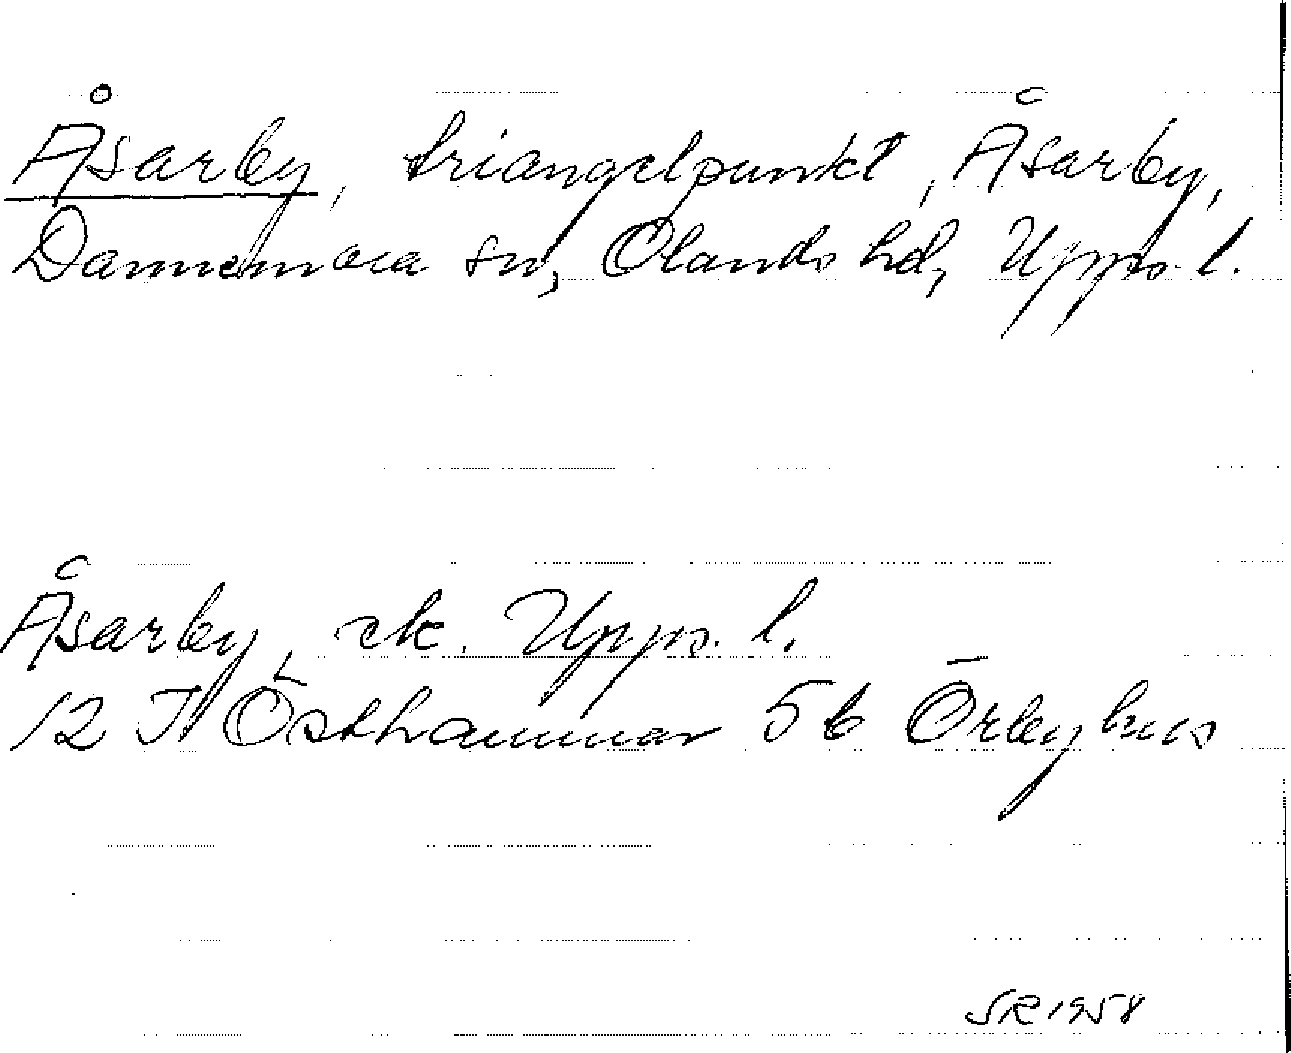 Åsarby, triangelpunkt, Åsarby,
Dannemora sn, Olands hd, Upps. l.
Åsarby, ek. Upps. l.
12 I Östhammar 5b Örbyhus
SR 1958